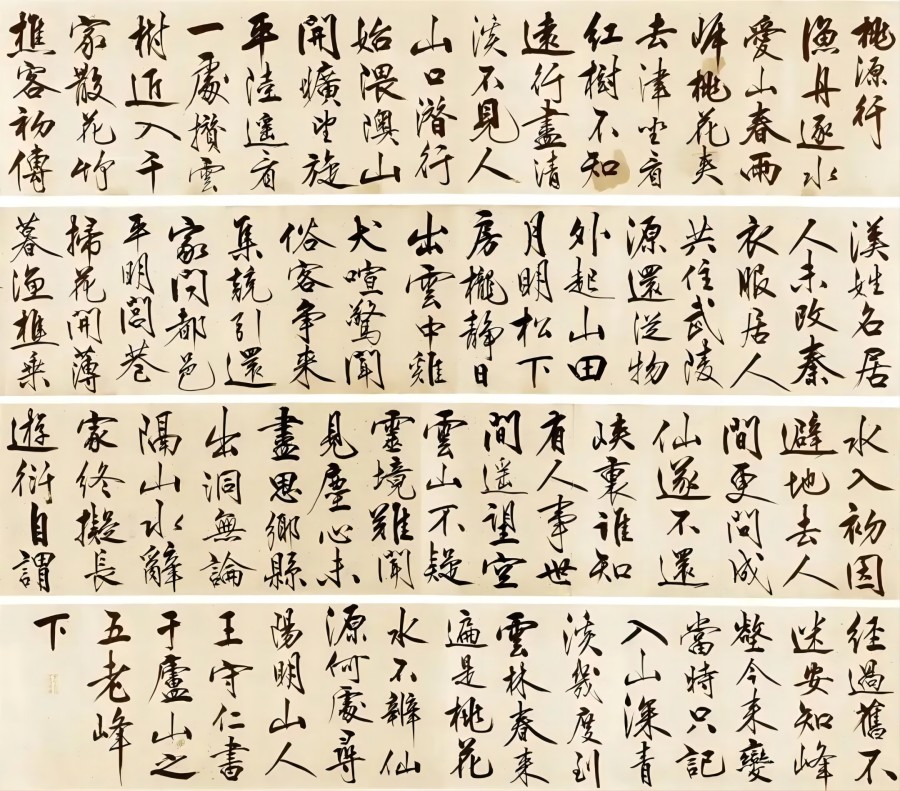 桃源行
漁舟逐水
愛山春兩
岸桃花夾
去津坐看
紅樹不知
遠行盡清
溪不見人
山口潛行
始隈澳山
開曠望旋
平陸遥看
一處攅雲
樹近入千
家散花竹
樵客初傳
漢姓名居
人未改秦
衣服居人
共住武陵
源還從物
外起山田
月明松下
房櫳静日
出雲中雞
犬喧驚聞
俗客争来
集競引還
家問都邑
平明閭巷
掃花開薄
暮漁樵乗
水入初因
避地去人
間更問成
仙遂不還
峽裏誰知
有人事世
間遥望空
雲山不疑
靈境難聞
見塵心未
盡思鄉縣
出洞無論
隔山水辭
家終擬長
遊衍自謂
經過舊不
迷安知峰
壑今来變
當時只記
入山深青
溪幾度到
雲林春来
遍是桃花
水不辨仙
源何處尋
陽明山人
王守仁書
于廬山之
五老峰
下